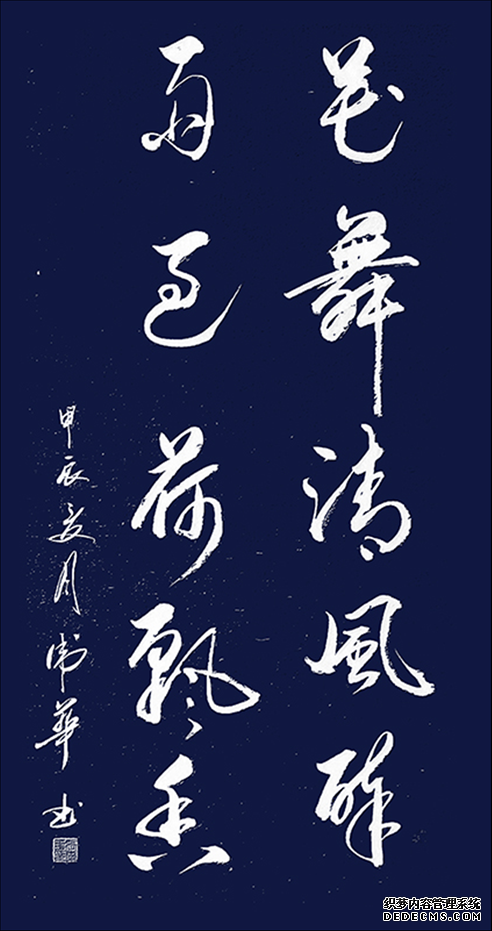 花舞清風醉
雨過荷飄香
甲辰夏月 華書
织梦内容管理系统
DEDECMS.COM